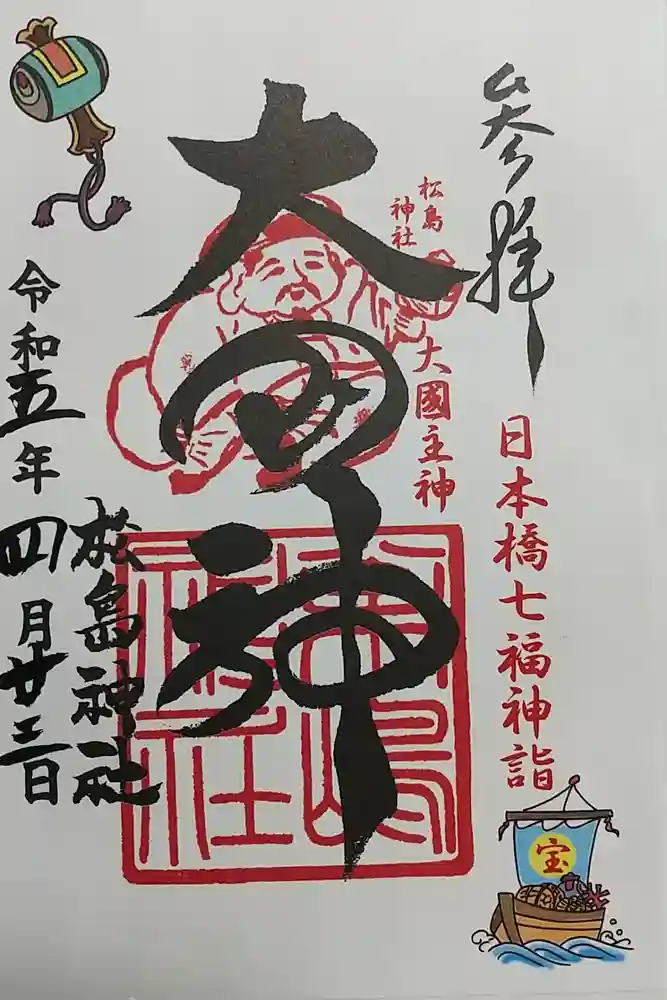 参拝
日本橋七福神詣
松島
神社
大國主神
大国神
松嶋
神社
松島神社
令和五年四月廿三日
宝